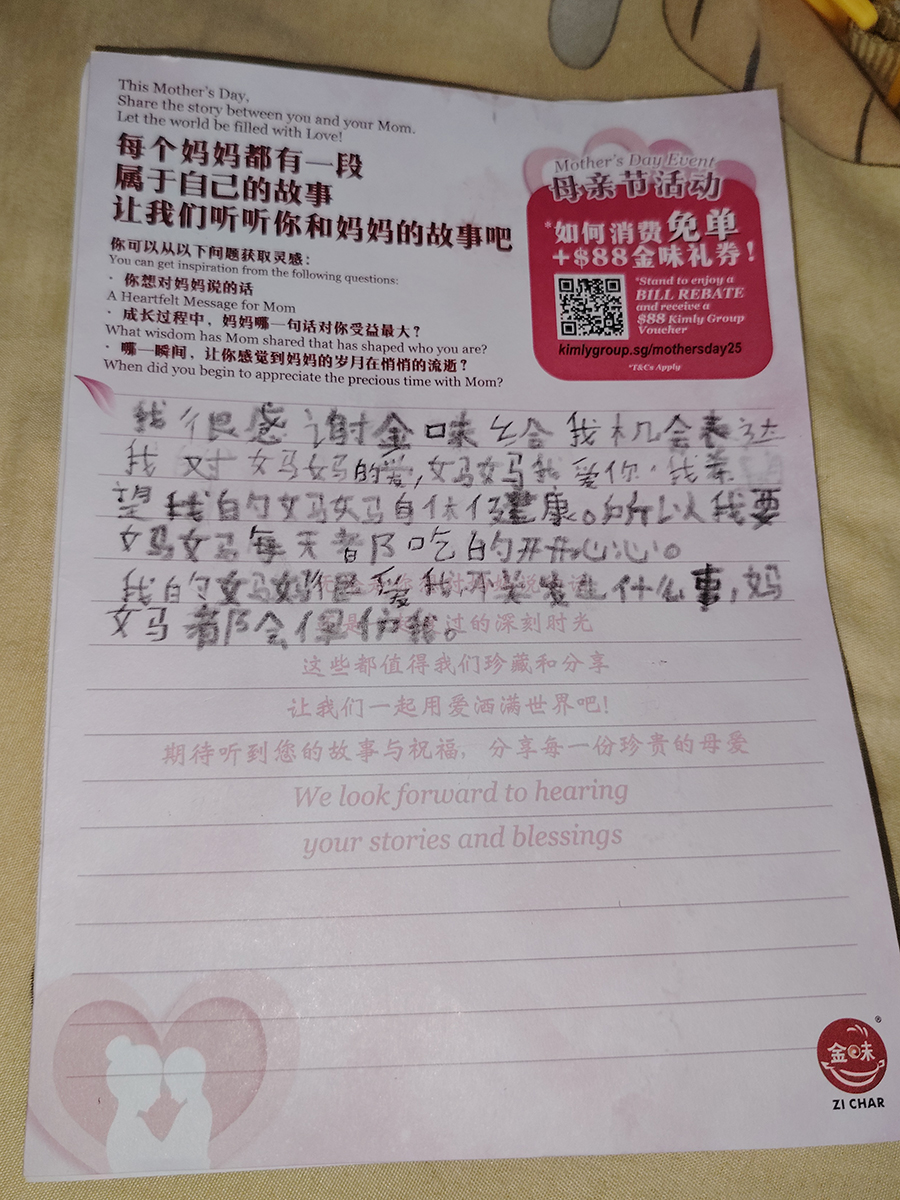 This Mother's Day,
Share the story between you and your Mom.
Let the world be filled with Love!
每个妈妈都有一段
属于自己的故事
让我们听听你和妈妈的故事吧
你可以从以下问题获取灵感：
You can get inspiration from the following questions:
· 你想对妈妈说的话
A Heartfelt Message for Mom
· 成长过程中，妈妈哪一句话对你受益最大？
What wisdom has Mom shared that has shaped who you are?
· 哪一瞬间，让你感觉到妈妈的岁月在悄悄的流逝？
When did you begin to appreciate the precious time with Mom?
Mother's Day Event
母亲节活动
*如何消费免单
+$88金味礼券！
*Stand to enjoy a
BILL REBATE
and receive a
$88 Kimly Group
Voucher
kimlygroup.sg/mothersday25
*T&Cs Apply
我很感谢金味给我机会表达
我对妈妈的爱,妈妈我爱你。我希
望我的妈妈身体健康。所以我要
妈妈每天都吃的开开心心。
我的妈妈很爱我,不管发生什么事,妈
妈都会保护我。
过的深刻时光
这些都值得我们珍藏和分享
让我们一起用爱洒满世界吧！
期待听到您的故事与祝福，分享每一份珍贵的母爱
We look forward to hearing
your stories and blessings
金味
®
ZI CHAR